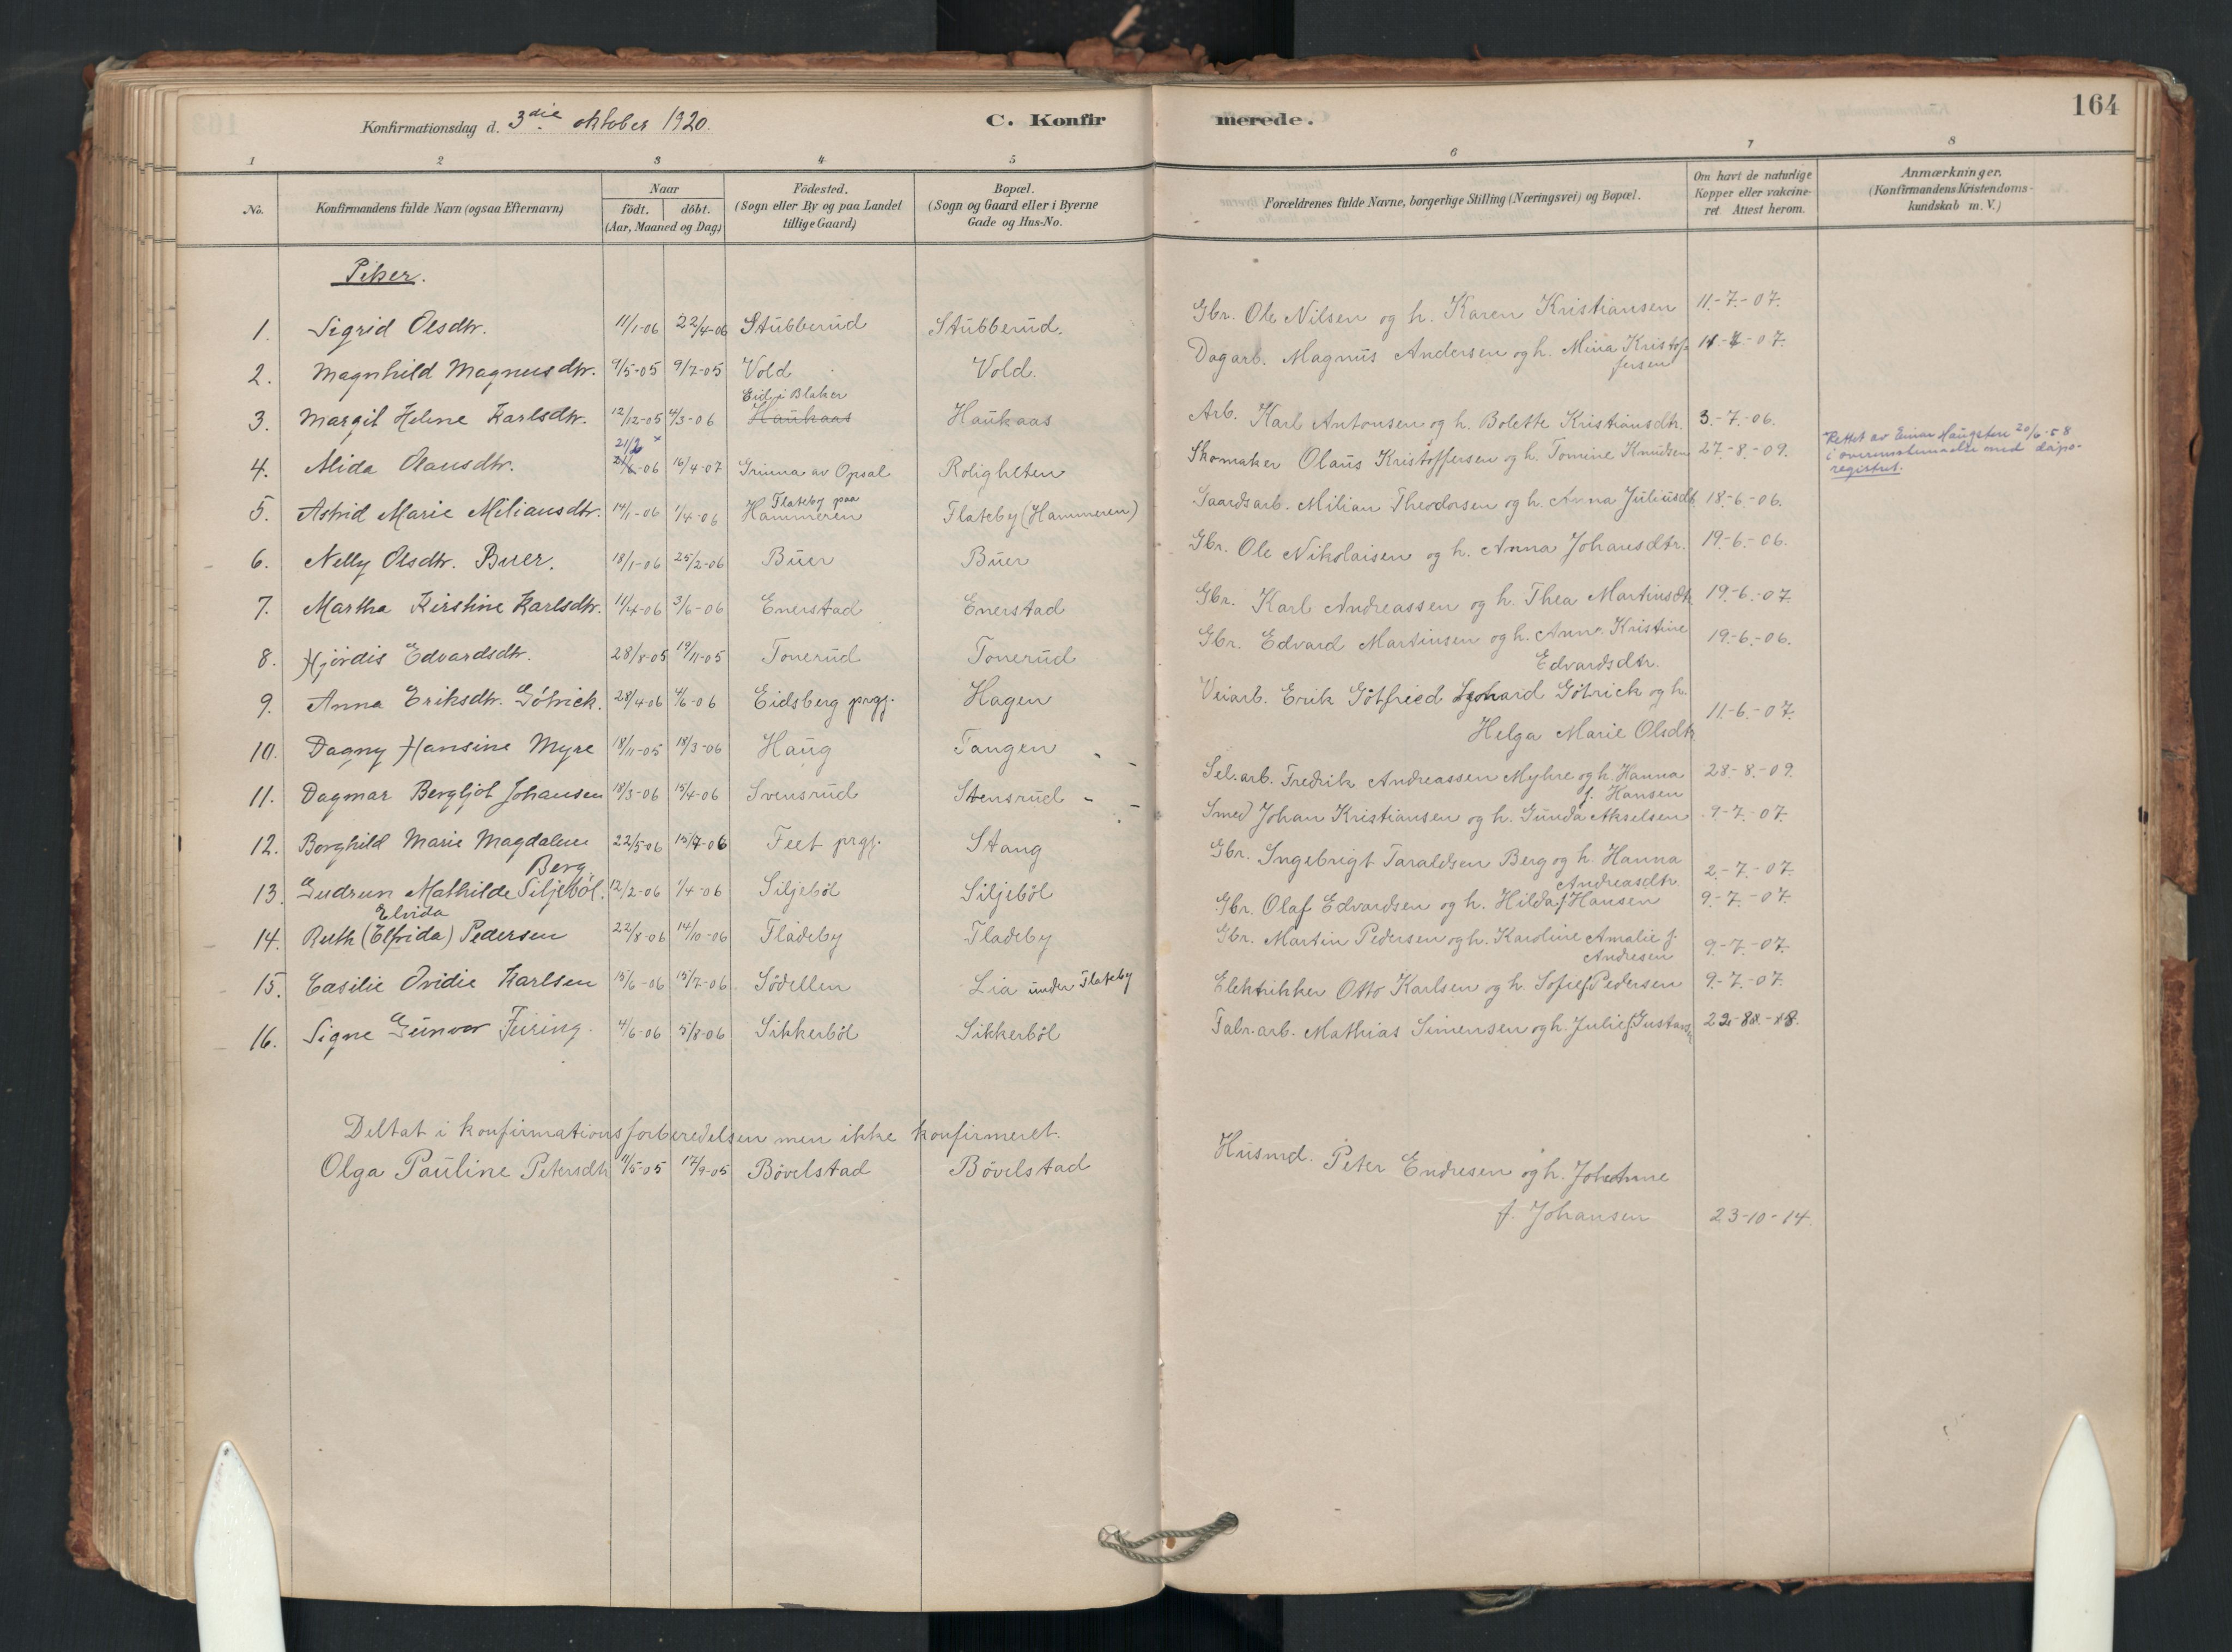 Konfirmationsdag d. 3die oktober 1920. C. Konfirmerede. 164
1 2 3 4 5 6 7 8
No. Konfirmandens fulde Navn (ogsaa Efternavn) Naar födt. döbt. (Aar, Maaned og Dag) Födested. (Sogn eller By og paa Landet tillige Gaard) Bopæl. (Sogn og Gaard eller i Byerne Gade og Hus-No. Forældrenes fulde Navne, borgerlige Stilling (Næringsvei) og Bopæl. Om havt de naturlige Kopper eller vakcineret. Attest herom. Anmærkninger. (Konfirmandens Kristendomskundskab m. V.)
Piker.
1. Sigrid Olsdtr. 11/1-06 22/4-06 Stubberud Stubberud. Gbr. Ole Nilsen og h. Karen Kristiansen 11.-7.-07.
2. Magnhild Magnusdtr. 9/5-05 9/7-05 Vold Vold. Dagarb. Magnus Andersen og h. Mina Kristoffersen -07.
3. Margit Helene Karlsdtr. 12/12-05 4/3-06 Eid i Blaker Haukaas Haukaas Arb. Karl Antonsen og h. Bolette Kristiansdtr. 3.-7.-06.
4. Alida Olausdtr. 21/2 -06 16/4-07 Grinna av Opsal Roligheten Skomaker Olaus Kristoffersen og h. Tomine Knudsen 27.-8.-09. Rettet av Einar Haugsten 20/6-58 i overensstemmelse med dåpsregistret.
5. Astrid Marie Miliansdtr. 14/1-06 1/4-06 Flateby paa Hammeren Flateby (Hammeren) Gaardsarb. Milian Theodorsen og h. Anna Juliusdt. 18.-6.-06.
6. Nelly Olsdtr. Buer. 18/1-06 25/2-06 Buer Buer Gbr. Ole Nikolaisen og h. Anna Johansdtr. 19.-6.-06.
7. Martha Kirstine Karlsdtr. 11/4-06 3/6-06 Enerstad Enerstad Gbr. Karl Andreassen og h. Thea Martinsdtr 19.-6.-07.
8. Hjördis Edvardsdtr. 28/8-05 19/11-05 Tonerud Tonerud Gbr. Edvard Martinsen og h. Anna Kristine Edvardsdtr. 19.-6.-06.
9. Anna Eriksdtr. Götrick. 28/4-06 4/6-06 Eidsberg prgj. Hagen Veiarb. Erik Götfried Leonard Götrick og h. Helga Marie Olsdtr 11.-6.-07.
10. Dagny Hansine Myre 18/11-05 18/3-06 Haug Tangen Sel.arb. Fredrik Andreassen Myhre og h. Hanna f. Hansen 28.-8.-09.
11. Dagmar Bergljot Johansen 18/3-06 15/4-06 Svensrud Stensrud Smed Johan Kristiansen og h. Gunda Akselsen 9.-7.-07.
12. Borghild Marie Magdalene Berg. 22/5-06 15/7-06 Feet prgj. Stang Gbr. Ingebrigt Taraldsen Berg og h. Hanna Andreasdtr. 2.-7.-07.
13. Gudrun Mathilde Siljeböl. 12/2-06 1/4-06 Siljeböl Siljeböl Gbr. Olaf Edvardsen og h. Hilda f. Hansen 9.-7.-07.
14. Ruth (Elfrida) Elvida Pedersen 22/8-06 14/10-06 Fladeby Fladeby Gbr. Martin Pedersen og h. Karoline Amalie f. Andresen 9.-7.-07.
15. Casilie Ovidie Karlsen 15/6-06 15/7-06 Södellen Lia under Flateby Elektriker Otto Karlsen og h. Sofie f. Pedersen 9.-7.-07.
16. Signe Gunvor Furing. 4/6-06 5/8-06 Sikkerböl Sikkerböl Fabr.arb. Mathias Simensen og h. Julie f. Gustavsen
Deltat i konfirmationsforberedelsen men ikke konfirmeret.
Olga Pauline Petersdtr. 11/5-05 17/9-05 Bövelstad Bövelstad Husmd. Peter Endresen og h. Johanne
f. Johansen 23-10-14.